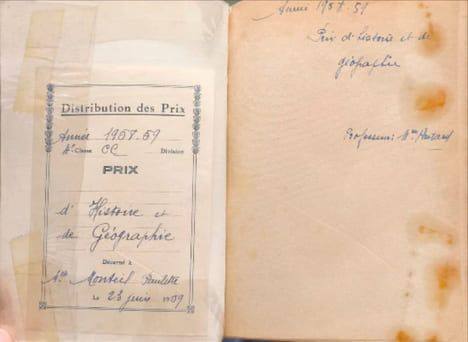 Distribution des Prix
Année 1957-59
4e Classe CC Division
PRIX
d'Histoire et
de Géographie
Décerné à
Mlle Monteil Paulette
Le 23 juin 1959
Année 1957-59
Prix d'histoire et de
géographie
Professeur: Mme